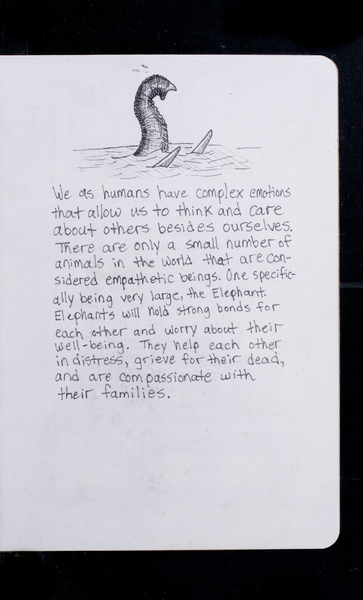 We as humans have complex emotions
that allow us to think and care
about others besides ourselves.
There are only a small number of
animals in the world that are con-
sidered empathetic beings. One specific-
ally being very large, the Elephant.
Elephants will hold strong bonds for
each other and worry about their
well-being. They help each other
in distress, grieve for their dead,
and are compassionate with
their families.